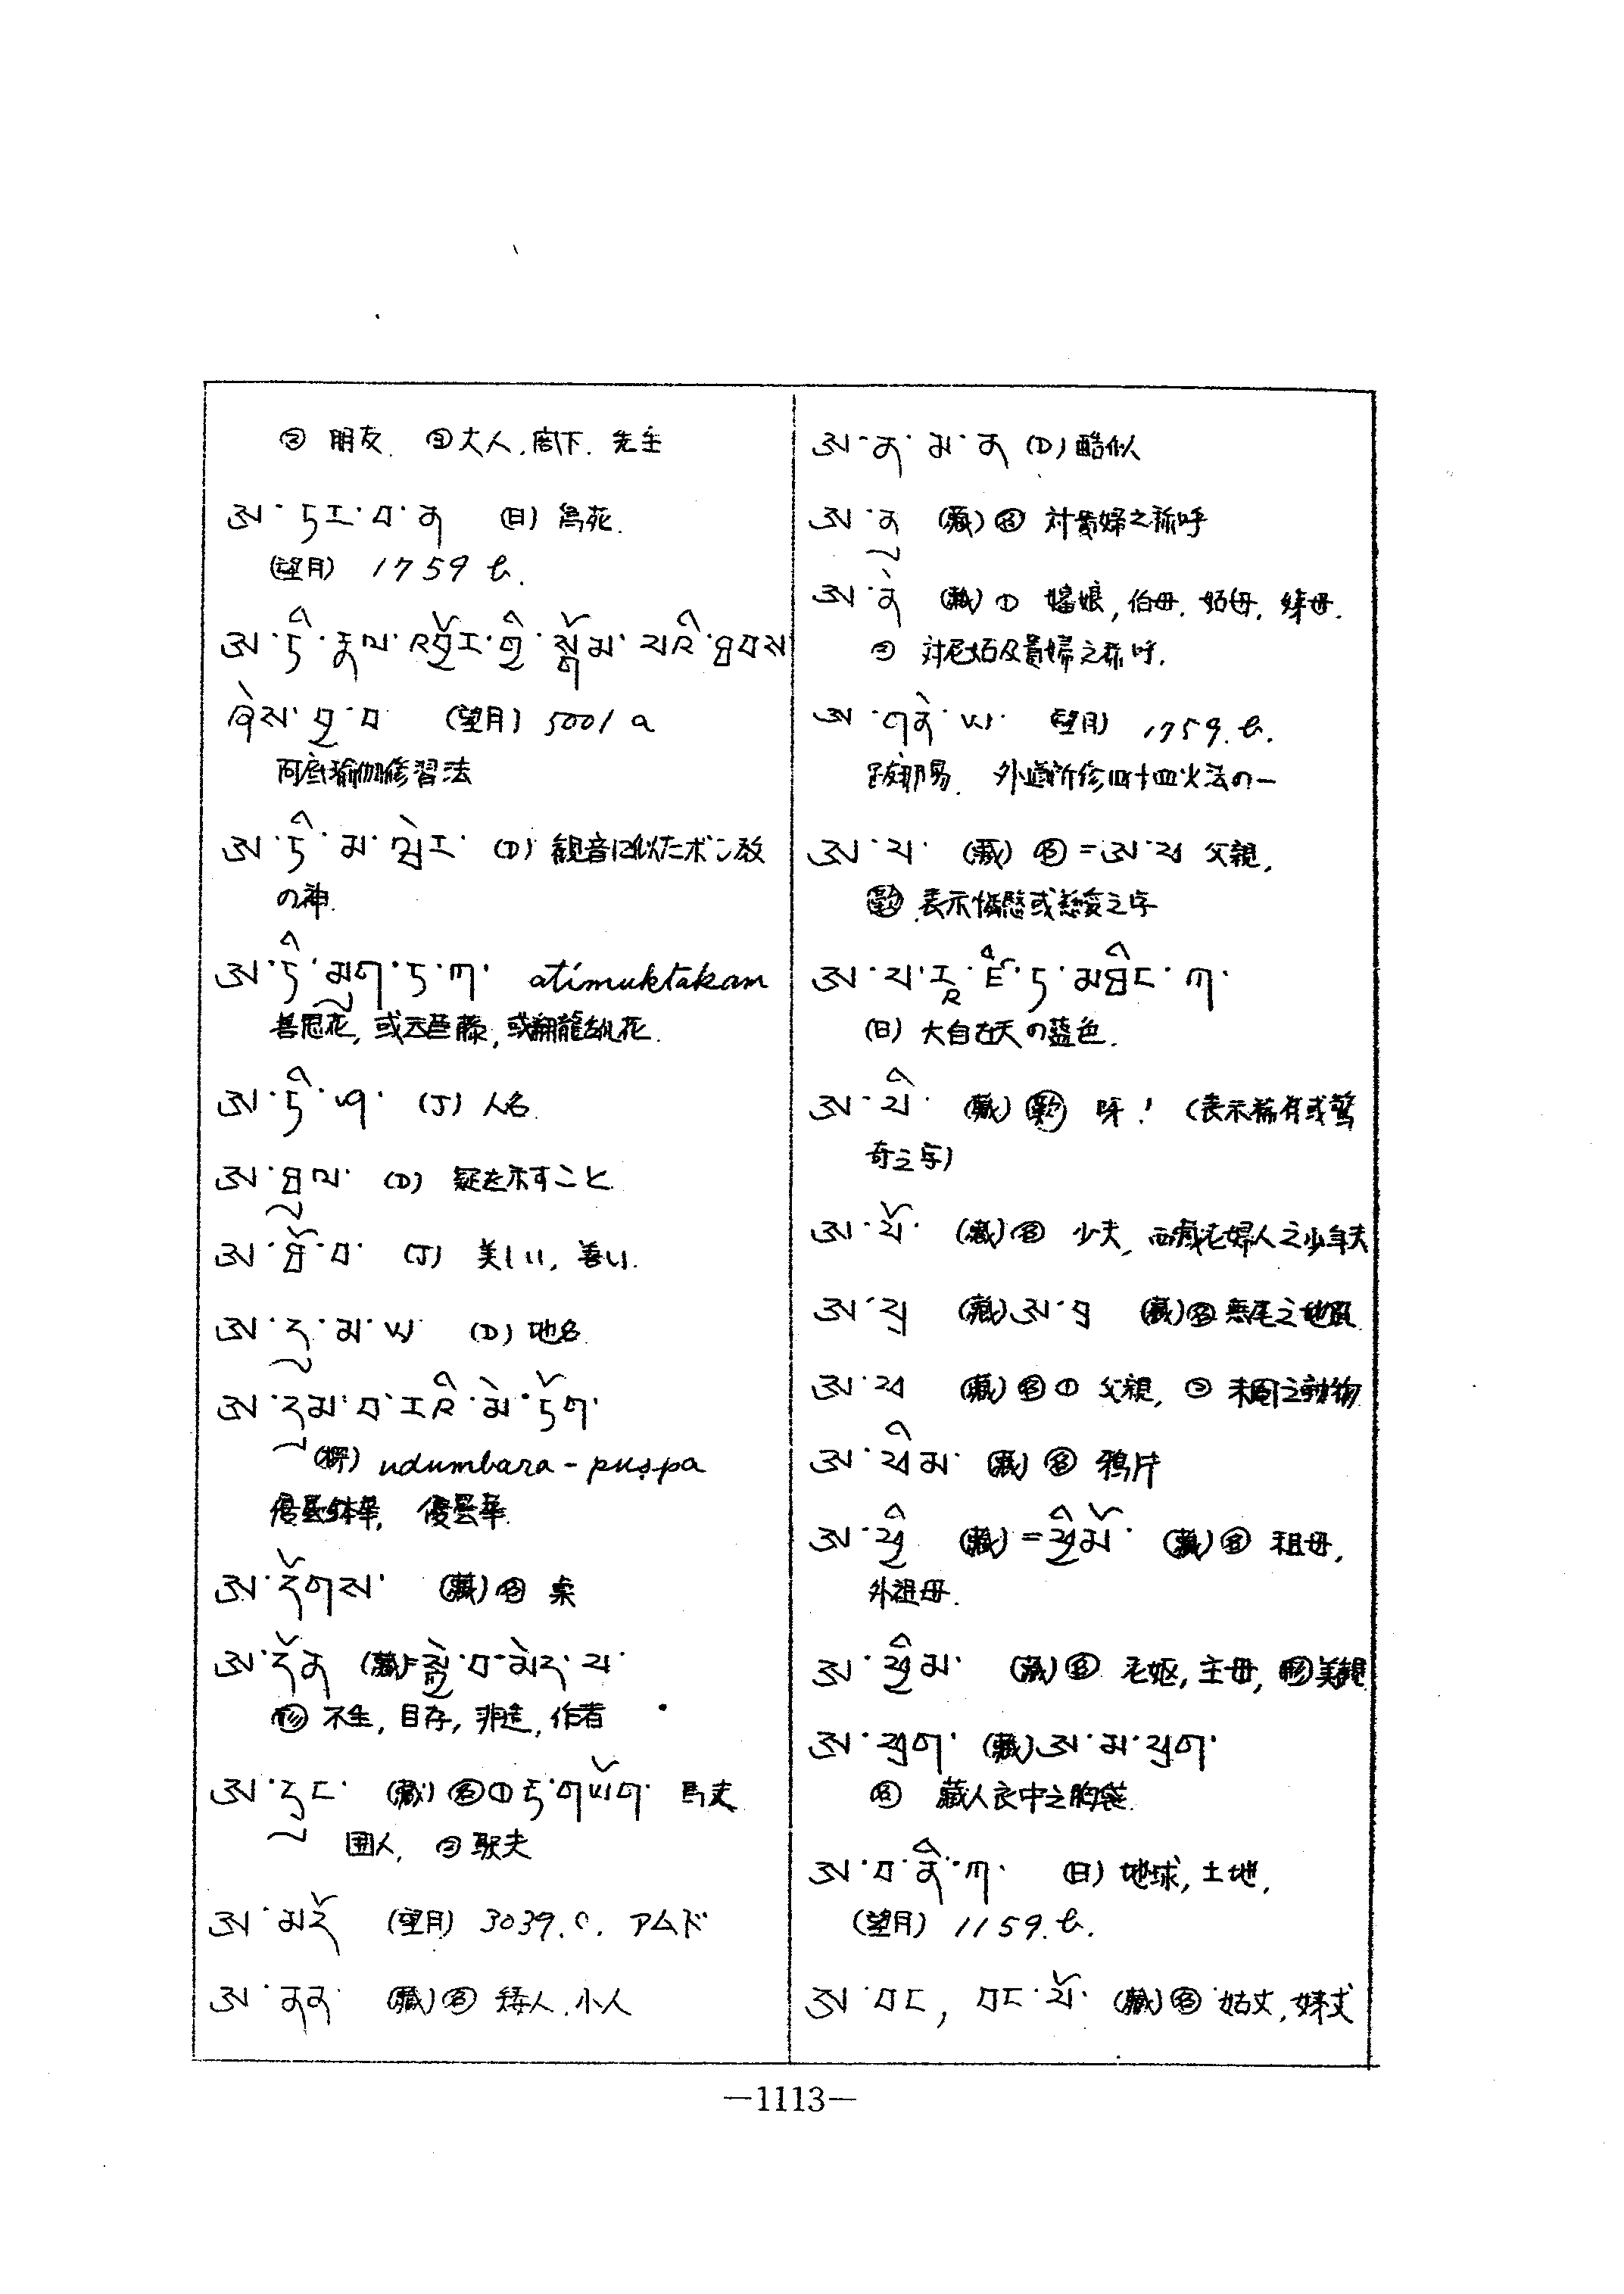 ② 朋友. ③大人,閣下. 先生
ཨ་ཏར་བ་ན (日) 烏苑.
(望月) 1759 b.
ཨ་ཏི་རྣལ་འབྱོར་གྱི་སྒོམ་པའི་ཐབས
ཞེས་བྱ་བ (望月) 5001 a
阿底瑜伽修習法
ཨ་ཏི་མ་ལེར་ (D) 観音に似たボン教
の神.
ཨ་ཏི་མུག་ཏ་ཀ་ atimuktakam
善思花, 或云苣藤, 或翻龍舐花.
ཨ་ཏི་ཤ་ (J) 人名.
ཨ་ཐུལ་ (D) 疑を示すこと
ཨ་ཐོ་བ་ (J) 美しい, 善い.
ཨ་ད་མ་ཡ (D) 地名
ཨ་དུམ་བ་རའི་མེ་ཏོག་
(梵) udumbara - puṣpa
優曇鉢華, 優曇華.
ཨ་དོགས་ (蔵) 名 桌
ཨ་དོན (蔵)=སྐྱེ་བ་མེད་པ་
形 不生, 自存, 非造, 作者
ཨ་དུང་ (蔵) 名 ① རྟ་གཡོག་ 馬夫
圉人, ② 馭夫
ཨ་མདོ (望月) 3039.c. アムド
ཨ་ནན་ (蔵) 名 矮人, 小人
ཨ་ན་མ་ན (D) 酷似
ཨ་ནུ (蔵) 名 対貴婦之称呼
ཨ་ནེ (蔵) ① 嬸娘, 伯母, 姑母, 姨母.
② 対尼姑及貴婦之称呼.
ཨ་གནེ་ཡ་ (望月) 1759. b.
外道所修四十四火法の一
ཨ་པ་ (蔵) 名 =ཨ་ཕ 父親,
歎 表示憐愍或慈愛之字
(日) 大自在天の藍色.
ཨ་པི་ (蔵) 歎 呀! (表示稀有或驚
奇之字)
ཨ་པོ་ (蔵) 名 少夫, 西蔵老婦人之少年夫
ཨ་པྲ (蔵) ཨ་བྲ (蔵) 名 無尾之地鼠
ཨ་ཕ (蔵) 名 ① 父親, ② 未閹之動物
ཨ་ཕིམ་ (蔵) 名 鴉片
ཨ་ཕྱི (蔵) =ཕྱི་མོ་ (蔵) 名 祖母,
外祖母.
ཨ་ཕྱིམ་ (蔵) 名 老嫗, 主母, 形 美貌
ཨ་ཕྲག་ (蔵) ཨ་མ་ཕྲག་
名 蔵人衣中之胸袋.
ཨ་བ་ནི་ཀ་ (日) 地球, 土地,
(望月) 1159. b.
ཨ་བང, བང་པོ་ (蔵) 名 姑丈, 姨丈
—1113—